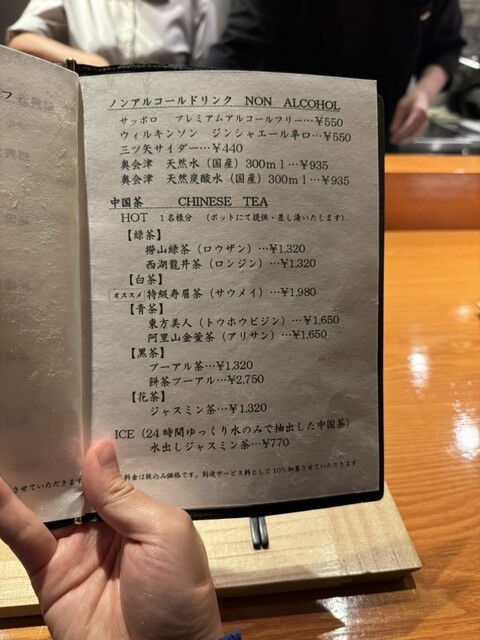 ノンアルコールドリンク NON ALCOHOL
サッポロ プレミアムアルコールフリー…¥550
ウィルキンソン ジンシャエール辛口…¥550
三ツ矢サイダー…¥440
奥会津 天然水（国産）300ml…¥935
奥会津 天然炭酸水（国産）300ml…¥935
中国茶 CHINESE TEA
HOT 1名様分 （ポットにて提供・差し湯いたします）
【緑茶】
嶗山緑茶（ロウザン）…¥1,320
西湖龍井茶（ロンジン）…¥1,320
【白茶】
オススメ 特級寿眉茶（サウメイ）…¥1,980
【青茶】
東方美人（トウホウビジン）…¥1,650
阿里山金萱茶（アリサン）…¥1,650
【黒茶】
プーアル茶…¥1,320
餅茶プーアル…¥2,750
【花茶】
ジャスミン茶…¥1,320
ICE（24時間ゆっくり水のみで抽出した中国茶）
水出しジャスミン茶…¥770
料金は税込み価格です。別途サービス料として10%加算させていただきます
させていただきます